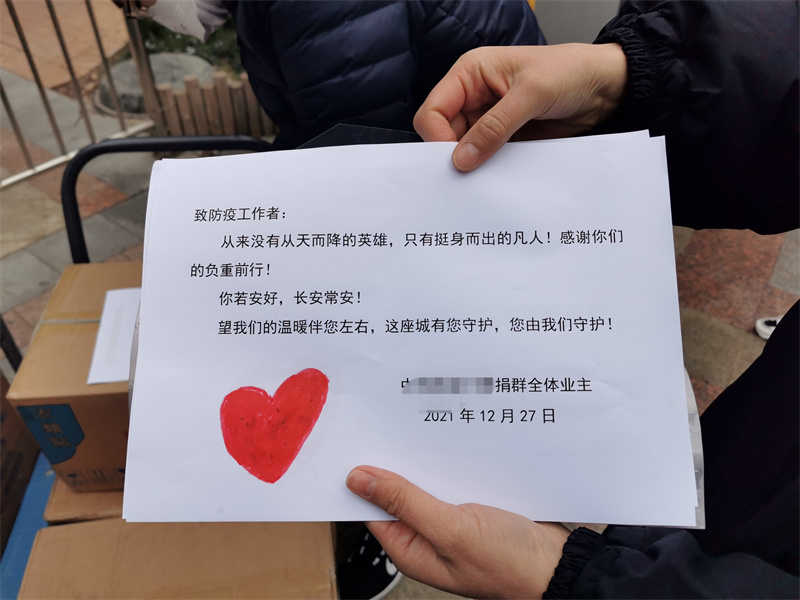 致防疫工作者：
从来没有从天而降的英雄，只有挺身而出的凡人！感谢你们
的负重前行！
你若安好，长安常安！
望我们的温暖伴您左右，这座城有您守护，您由我们守护！
捐群全体业主
2021 年 12 月 27 日